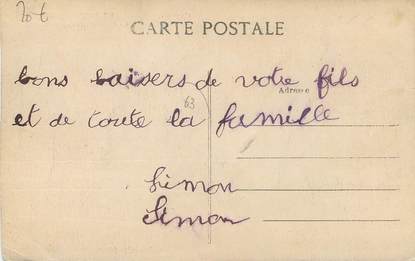 20 €
CARTE POSTALE
bons baisers de votre fils
Adresse
63
et de toute la famille
Simon
Simon